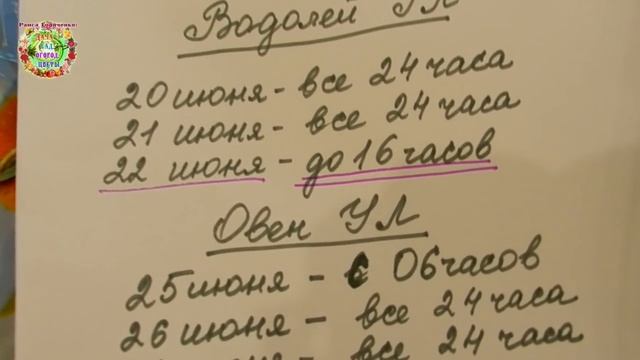 Раиса Горяченко:
САД
ОГОРОД
ЦВЕТЫ
Водолей УЛ
20 июня - все 24 часа
21 июня - все 24 часа
22 июня - до 16 часов
Овен УЛ
25 июня - с 06 часов
26 июня - все 24 часа
все 24 часа